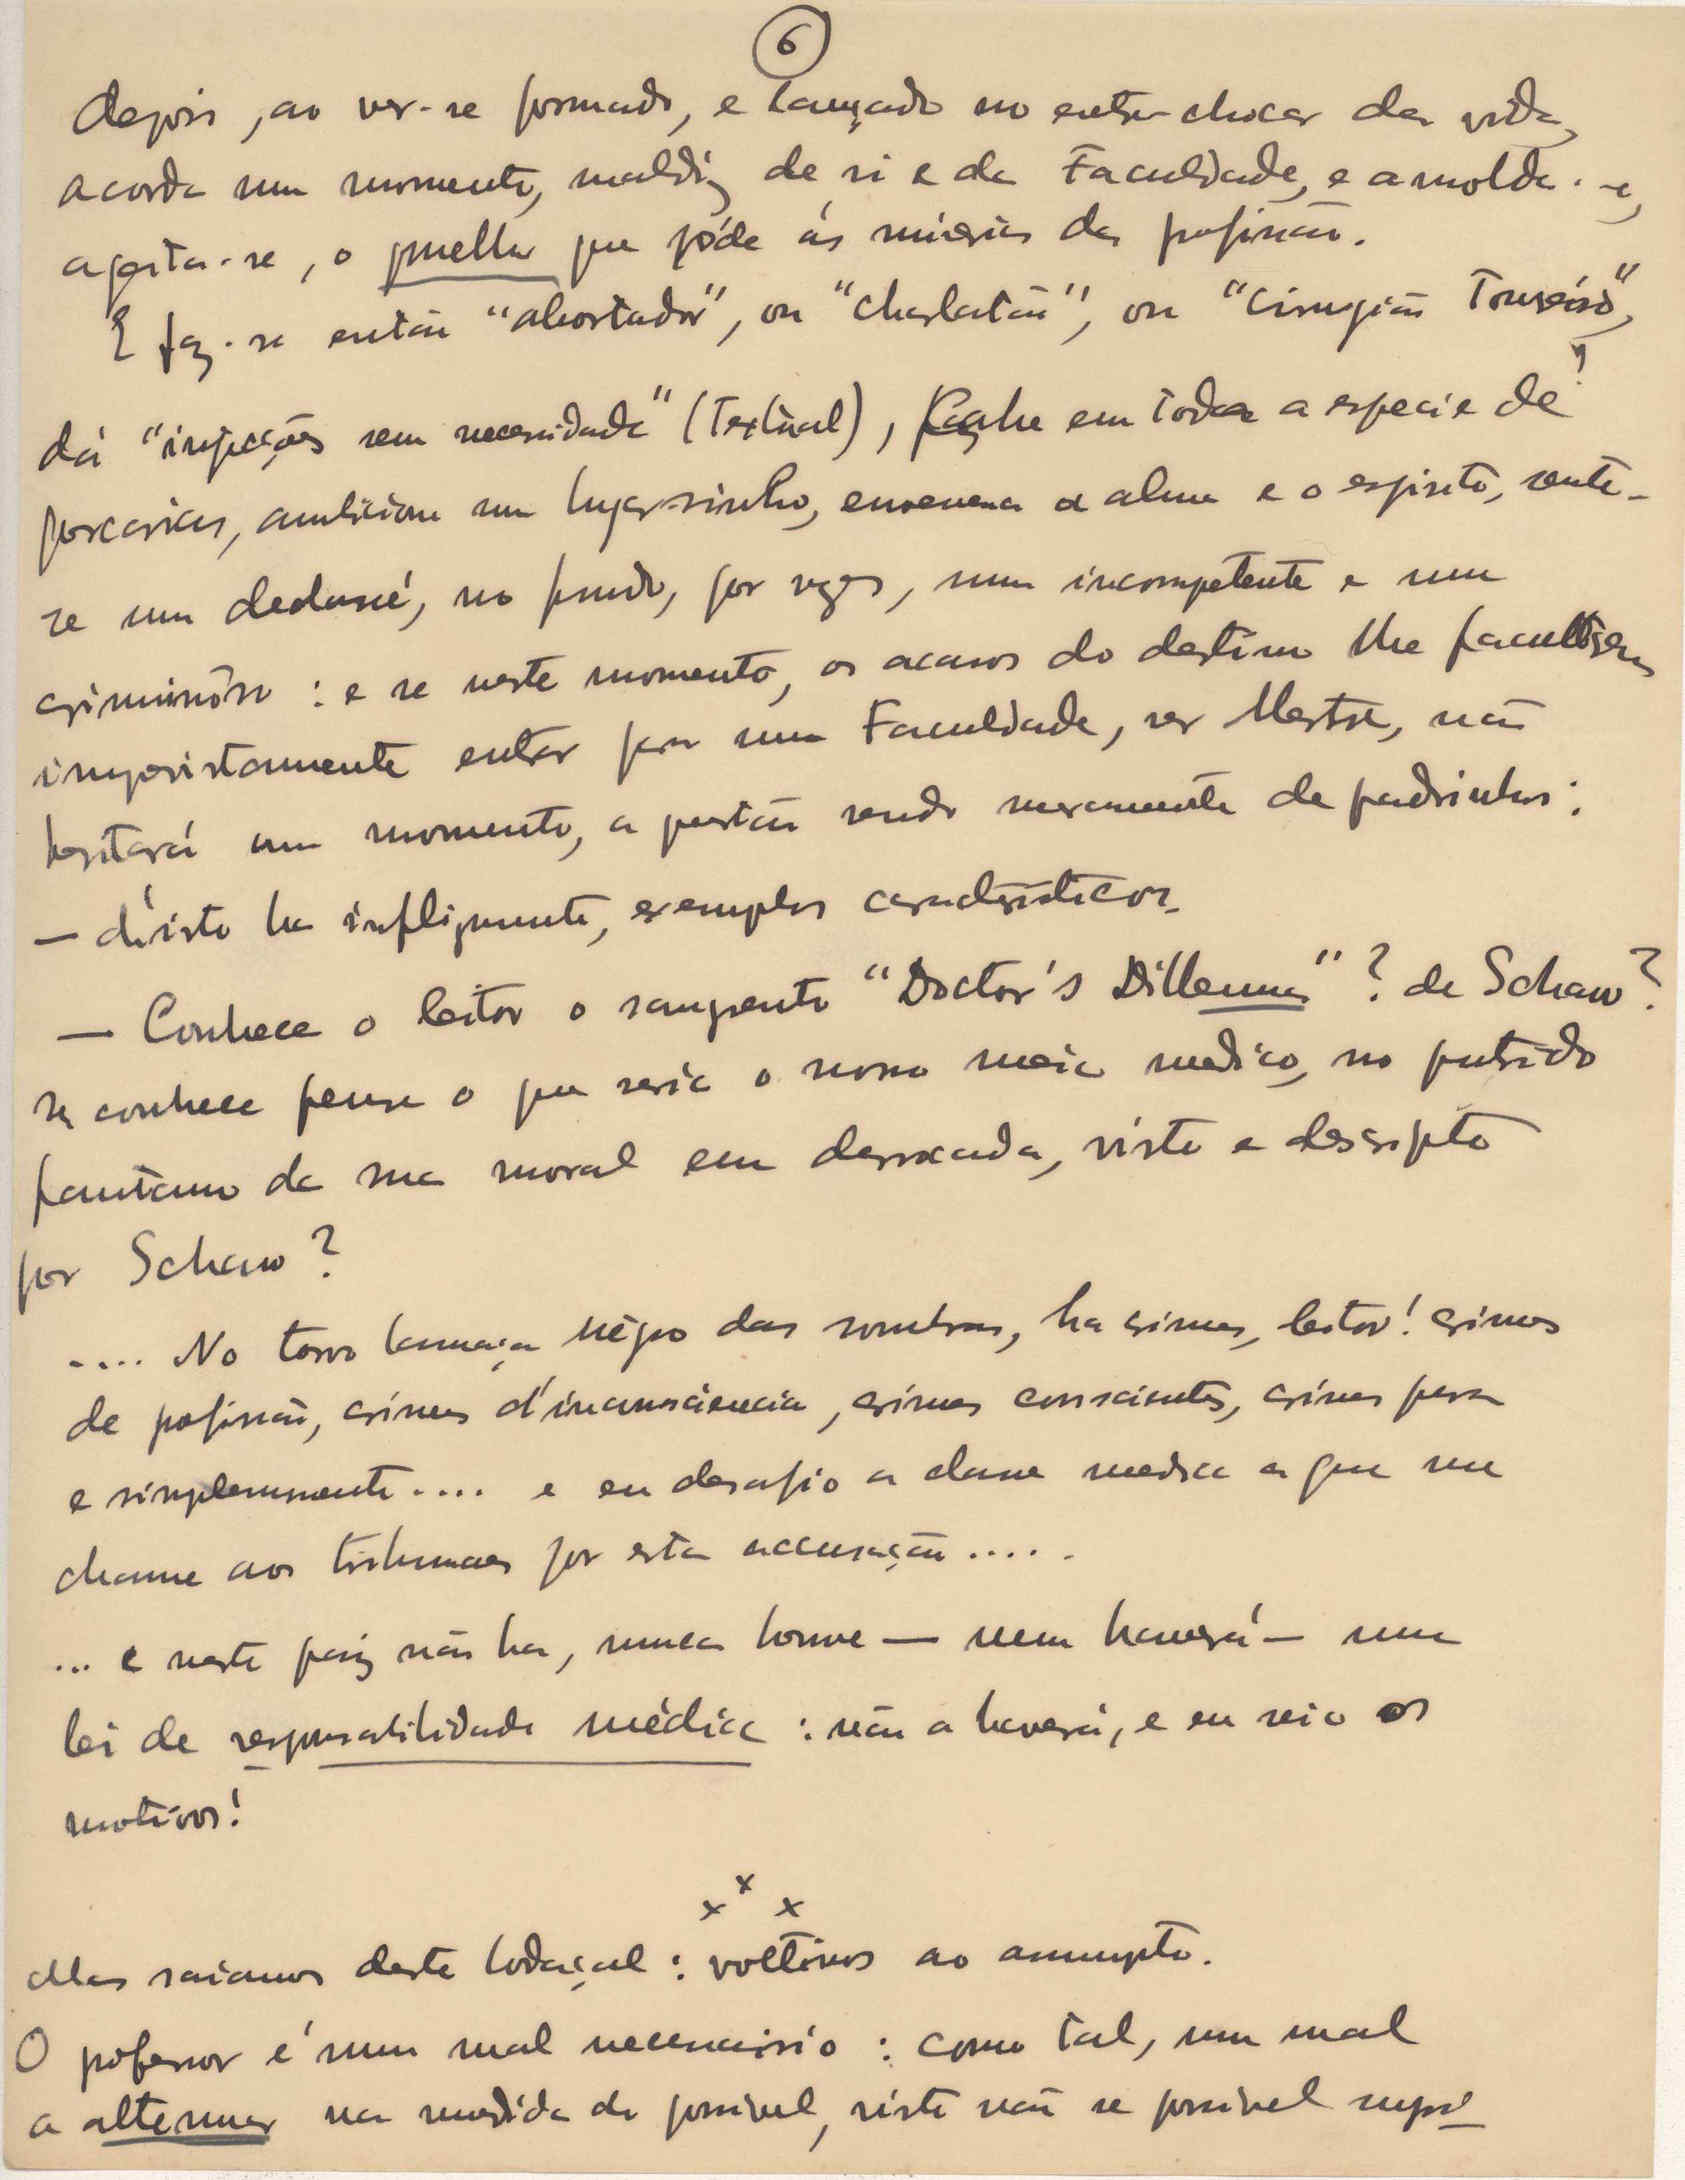 6
depois, ao ver-se formado, e lançado no entre-chocar da vida,
acorda um momento, maldiz de si e da Faculdade, e amolda-se,
ageita-se, o melhor que póde ás miserias da profissão.
E faz-se então "abortador", ou "charlatão", ou "cirurgião
dá "injecções sem necessidade" (Textual), em toda a especie de
porcarias, ambiciona um lugarsinho, envenena a alma e o espirito, sente-
se um declassé, no fundo, por vezes, um incompetente e um
criminôso : e se neste momento, os acasos do destino lhe facultarem
imprevistamente entrar para uma Faculdade, ser Mestre, não
hesitará um momento, a questão sendo meramente de padrinhos :
— d'isto ha infelizmente, exemplos caracteristicos.
— Conhece o leitor o sangrento "Doctor's Dillemma" ? de Schaw ?
se conhece pense o que seria o nosso meio medico, no putrido
pantano da sua moral em derrocada, visto e descripto
por Schaw ?
.... No torvo lamaçal négro das sombras, ha crimes, leitor! crimes
de profissão, crimes d'inconsciencia, crimes conscientes, crimes pura
e simplesmente .... e eu desafio a classe medica a que me
chame aos tribunaes por esta accusação .....
... e neste paiz não ha, nunca houve — nem haverá — uma
lei de responsabilidade médica : não a haverá, e eu sei os
motivos!
x x x
Mas saiamos deste lodaçal : voltemos ao assumpto.
O professor é um mal necessario : como tal, um mal
a attenuar na medida do possivel, visto não se possivel supri-